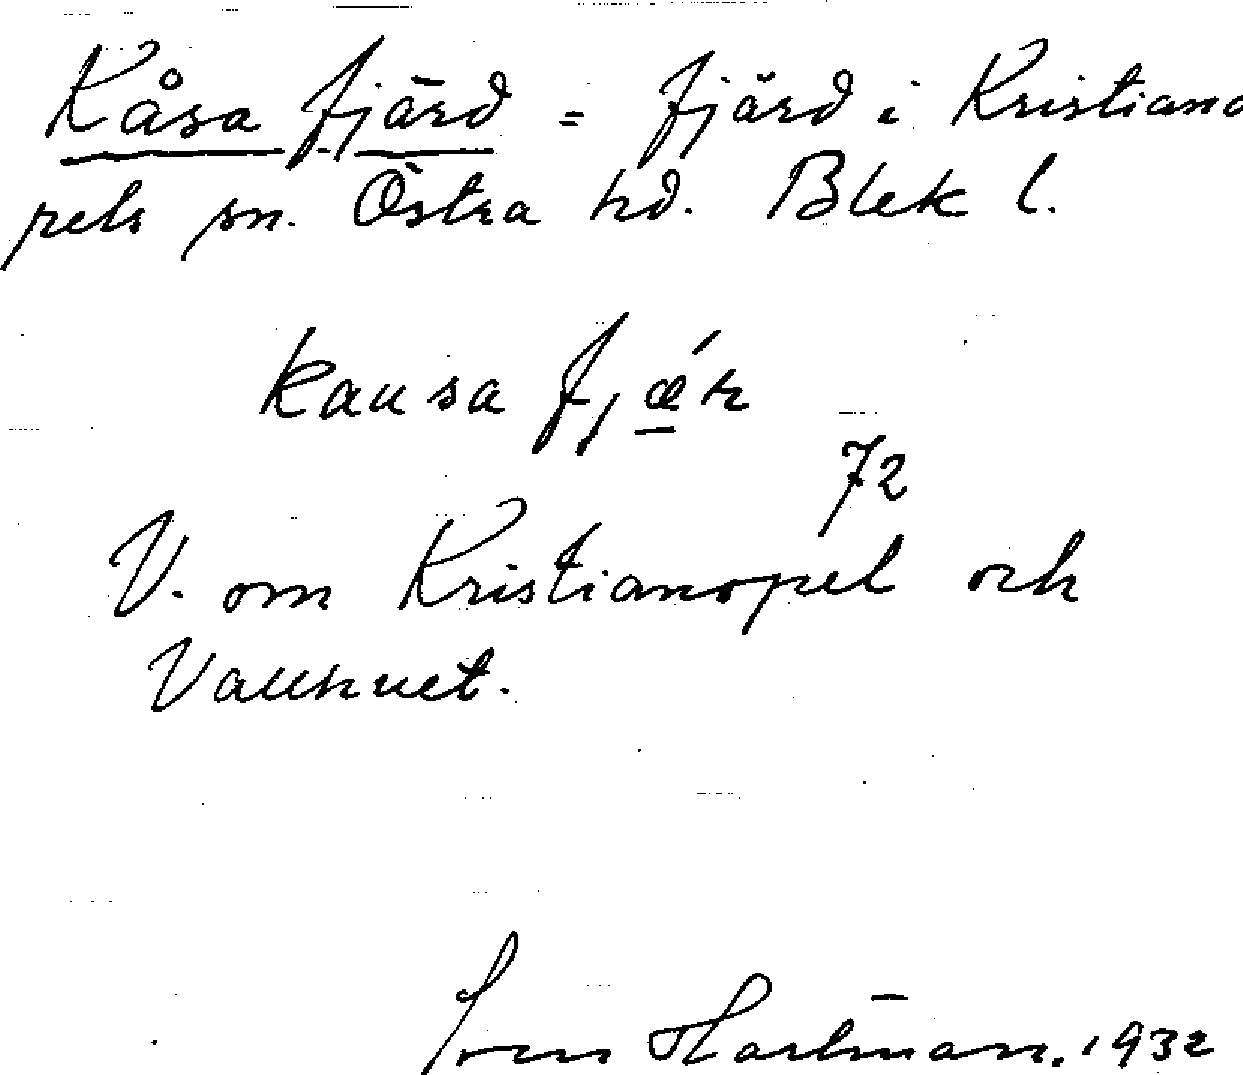 Kåsa fjärd = fjärd i Kristiano
pels sn. Östra hd. Blek l.
kausa fjǽr
72
V. om Kristianopel och
Vallhuet.
Sven Hartman. 1932